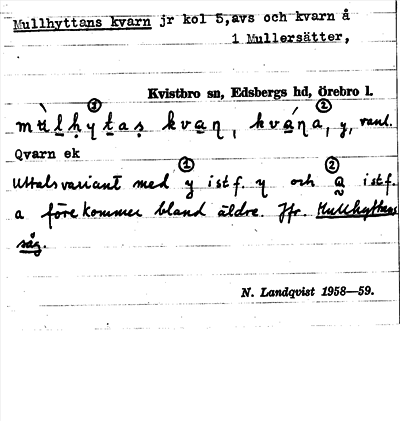 Mullhyttans kvarn jr kol 5,avs och kvarn å
1 Mullersätter,
Kvistbro sn, Edsbergs hd, Örebro l.
① ②
y, vanl.
Qvarn ek
① ②
Uttalsvariant med y istf. y och a istf.
a förekommer bland äldre. Jfr. Mullhyttans
såg.
N. Landqvist 1958—59.